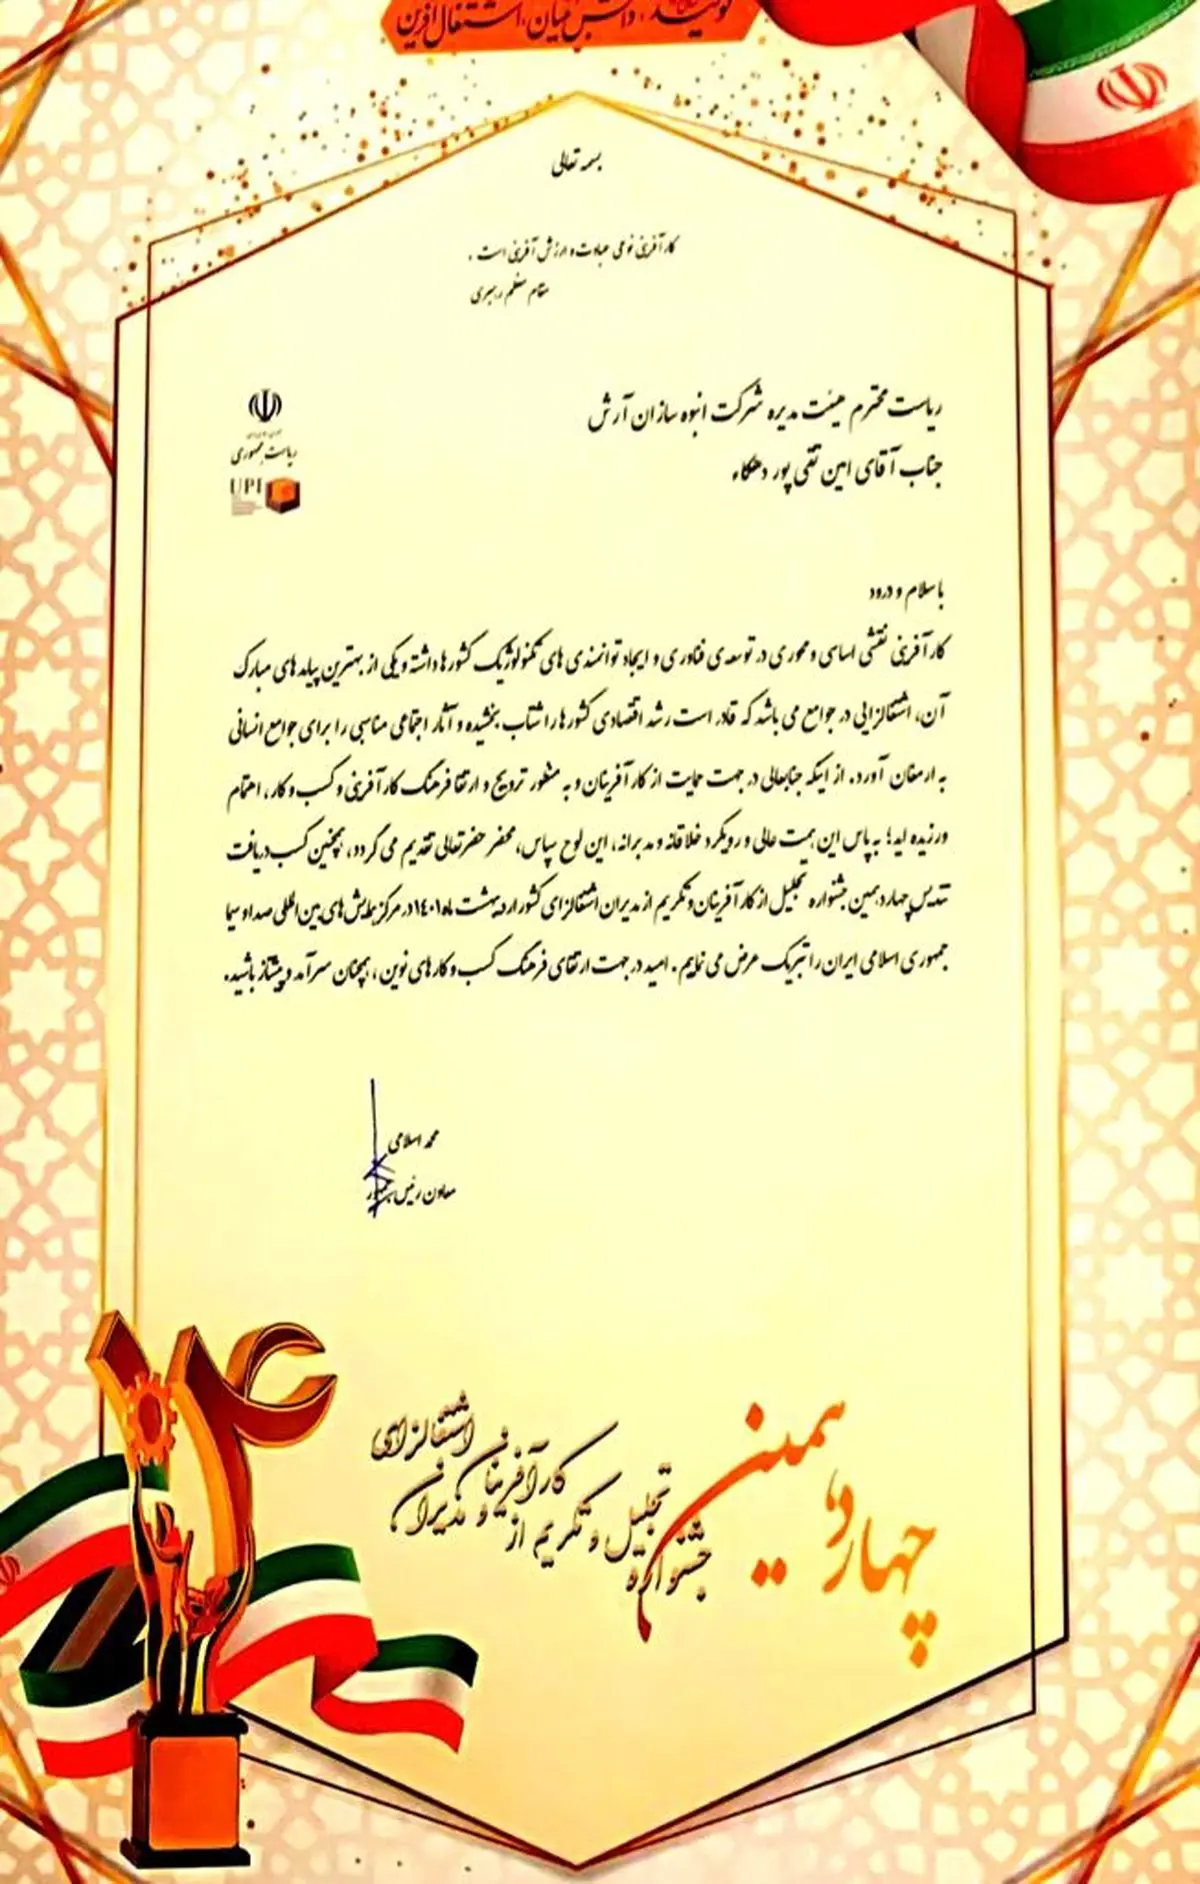 تولید، دانش بنیان، اشتغال آفرین
بسمه تعالی
کارآفرینی نوعی عبادت و ارزش آفرینی است .
مقام معظم رهبری
ریاست محترم هیئت مدیره شرکت انبوه سازان آرش
جناب آقای امین تقی پور دهکاء
ریاست جمهوری
UPI
با سلام و درود
کارآفرینی نقشی اساسی و محوری در توسعه ی فناوری و ایجاد توانمندی های تکنولوژیک کشورها داشته و یکی از بهترین پیامدهای مبارک
آن، اشتغالزایی در جوامع می باشد که قادر است رشد اقتصادی کشورها را شتاب بخشیده و آثار اجتماعی مناسبی را برای جوامع انسانی
به ارمغان آورد. از اینکه جنابعالی در جهت حمایت از کارآفرینان و به منظور ترویج و ارتقا فرهنگ کارآفرینی و کسب و کار، اهتمام
ورزیده اید؛ به پاس این همت عالی و رویکرد خلاقانه و مدبرانه، این لوح سپاس، محضر حضرتعالی تقدیم می گردد، همچنین کسب دریافت
تندیس چهاردهمین جشنواره تجلیل از کارآفرینان و تکریم از مدیران اشتغالزای کشور اردیبهشت ماه ۱۴۰۱ در مرکز همایش های بین المللی صدا و سیما
جمهوری اسلامی ایران را تبریک عرض می نماییم. امید در جهت ارتقای فرهنگ کسب و کارهای نوین، همچنان سرآمد و پیشتاز باشید.
محمد اسلامی
معاون رئیس جمهور
۱۴
چهاردهمین
جشنواره
تجلیل و تکریم از
کارآفرینان و مدیران
اشتغالزای